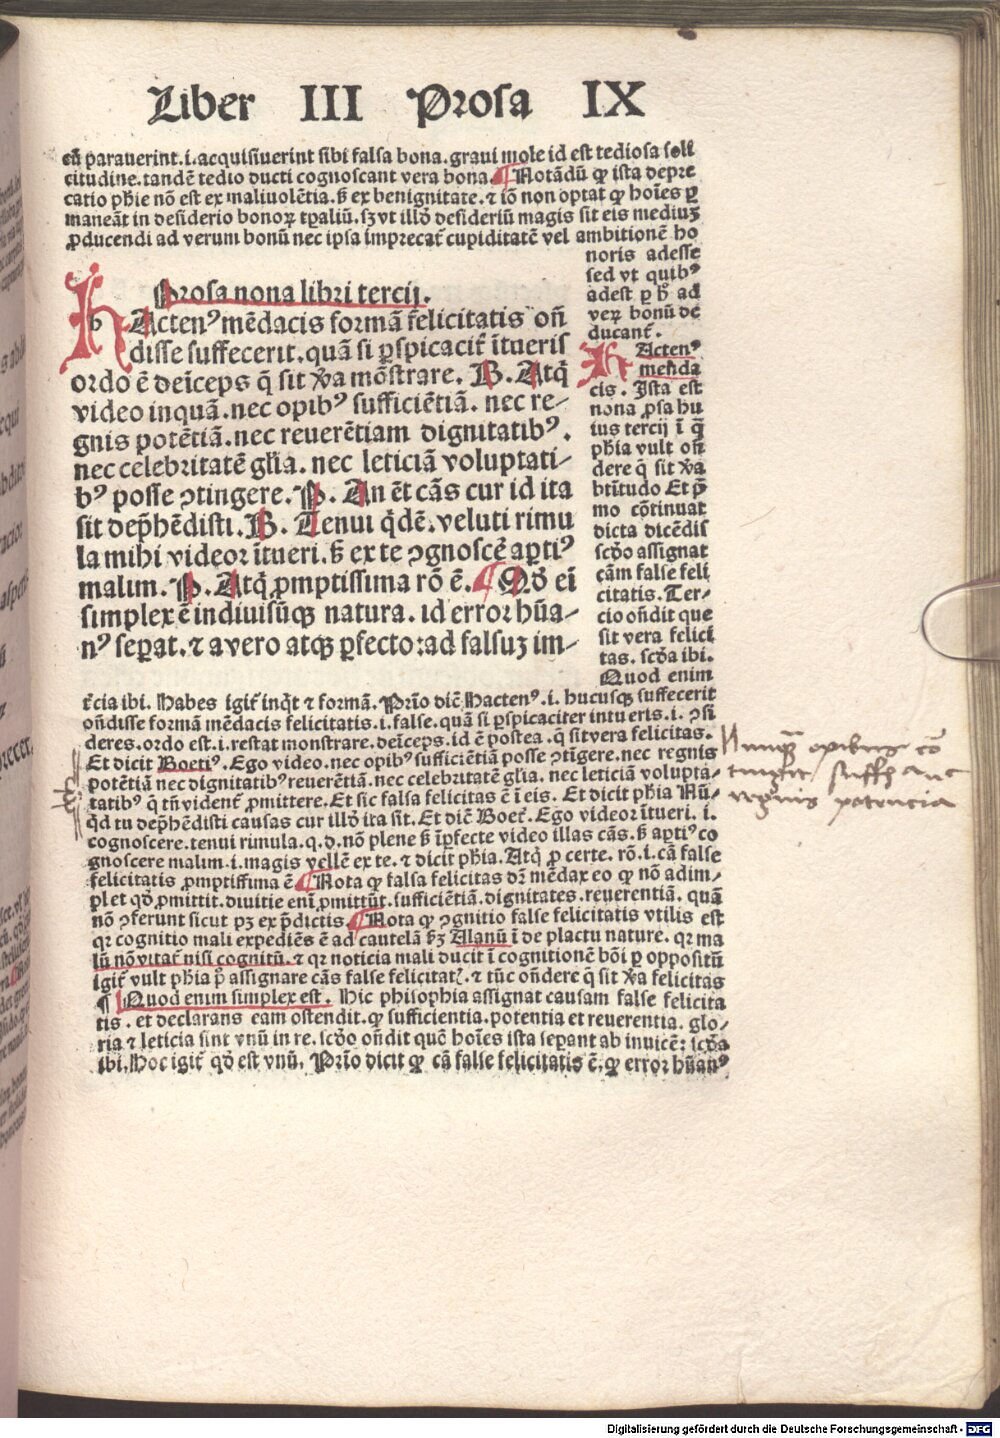 Liber III Prosa IX
cū parauerint.i.acquisiuerint sibi falsa bona.graui mole id est tediosa soli
citudine.tandē tedio ducti cognoscant vera bona.¶Notādū ꝙ ista depre
catio phīe nō est ex maliuolētia.ß ex benignitate.⁊ iō non optat ꝙ hoīes ꝑ
maneāt in desiderio bonoꝝ tꝑaliū.sꝫ vt illoꝝ desideriū magis sit eis mediuꝫ
ꝓducendi ad verum bonū nec ipsa imprecat̄ cupiditatē vel ambitionē ho
noris adesse
sed vt quibꝰ
adest ꝑ h̄ ad
veꝝ bonū de
ducant̄.
Prosa nona libri tercij.
hActenꝰ mēdacis formā felicitatis on̄
disse suffecerit.quā si ꝑspicacit̄ ītueris
ordo ē deīceps q̄ sit v̄a mōstrare. B.Atq̄
video inquā.nec opibꝰ sufficiētiā. nec re-
gnis potētiā.nec reuerētiam dignitatibꝰ.
nec celebritatē gl̄ia. nec leticiā voluptati-
bꝰ posse ꝯtingere. P. An ēt cās cur id ita
sit dep̄hēdisti. B. Tenui q̄dē.veluti rimu
la mihi videor ītueri.ß ex te ꝯgnoscē aꝑtiꝰ
malim. P. Atq̄ ꝓmptissima rō ē.¶Qđ ei
simplex ē indiuisūqꝫ natura. id error hūa-
nꝰ seꝑat.⁊ a vero atqꝫ ꝑfecto:ad falsuꝫ im-
HActenꝰ
menda
cis. Ista est
nona ꝓsa hu
ius tercij ī q̄
phīa vult on̄
dere q̄ sit v̄a
btītudo Et p̄
mo cōtinuat
dicta dicēdis
scđo assignat
cām false feli
citatis. Ter-
cio on̄dit que
sit vera felici
tas. scđa ibi.
Quod enim
t̄cia ibi. Habes igit̄ inqͥt ⁊ formā. Prīo dic̄ Hactenꝰ.i. hucusqꝫ suffecerit
on̄disse formā mēdacis felicitatis.i.false.quā si ꝑspicaciter intueris.i. ꝯsi
deres.ordo est.i.restat monstrare.deīceps.id ē postea.q̄ sit vera felicitas.
Et dicit Boetiꝰ.Ego video.nec opibꝰ sufficiētiā posse ꝯtīgere.nec regnis
potētiā nec dignitatibꝰ reuerētiā.nec celebritatē gl̄ia.nec leticiā volupta-
tatibꝰ q̄ tn̄ vident̄ ꝓmittere.Et sic falsa felicitas ē ī eis. Et dicit phīa Nū-
qđ tu dep̄hēdisti causas cur illđ ita sit. Et dic̄ Boet̄.Ego videor ītueri.i.
cognoscere.tenui rimula.q.d.nō plene ß īꝑfecte video illas cās.ß aꝑtiꝰ co
gnoscere malim.i.magis vellē ex te.⁊ dicit phīa.Atq̄ ꝓ certe. rō.i.cā false
felicitatis ꝓmptissima ē ¶Nota ꝙ falsa felicitas dr̄ mēdax eo ꝙ nō adim-
plet qđ ꝓmittit.diuitie enī ꝓmittūt.sufficiētiā.dignitates.reuerentiā. quā
nō ꝯferunt sicut pꝫ ex p̄dictis.¶Nota ꝙ ꝯgnitio false felicitatis vtilis est
qꝛ cognitio mali expediēs ē ad cautelā ßꝫ Alanū ī de planctu nature. qꝛ ma
lū nō vitat̄ nisi cognitū.⁊ qꝛ noticia mali ducit ī cognitionē bōi ꝑ oppositū
igit̄ vult phīa p̄ assignare cās false felicitat̄.⁊ tūc on̄dere q̄ sit v̄a felicitas
¶ Quod enim simplex est. Hic philophia assignat causam false felicita
tis. et declarans eam ostendit.ꝙ sufficientia.potentia et reuerentia. glo-
ria ⁊ leticia sint vnū in re.scđo on̄dit quō hoīes ista seꝑant ab inuicē: scđa
ibi.Hoc igit̄ qđ est vnū. Prīo dicit ꝙ cā false felicitatis ē.ꝙ error hūanꝰ
Nunquā opibus cō
tingere suffi auc
regnis potencia
Digitalisierung gefördert durch die Deutsche Forschungsgemeinschaft - DFG